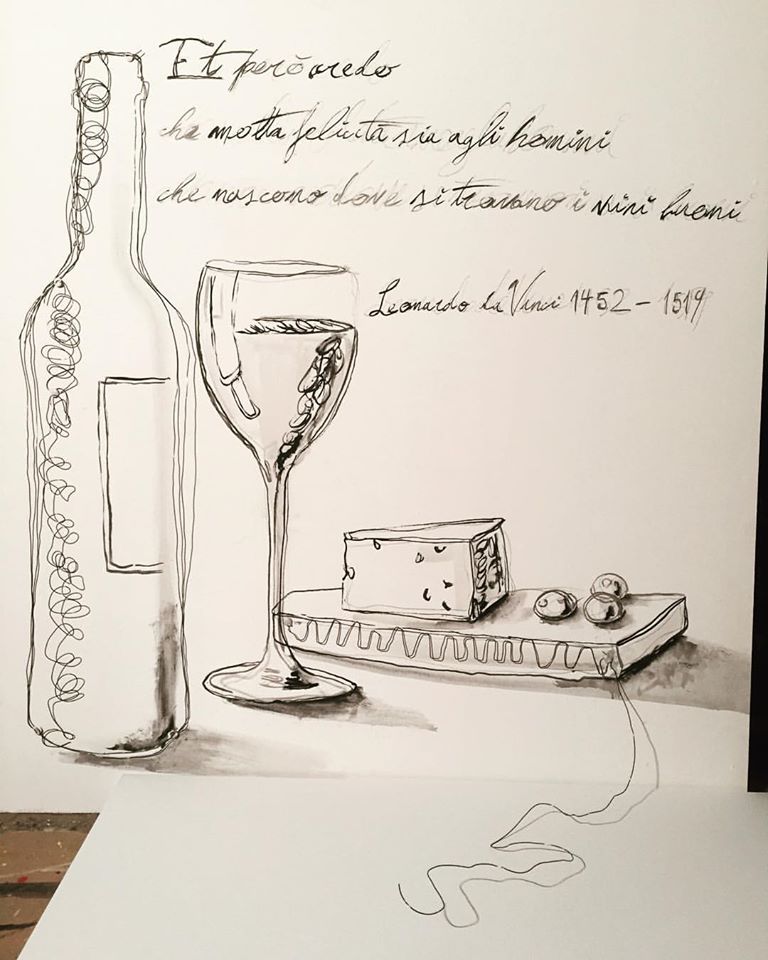 Et però credo
che molta felicità sia agli homini
che nascono dove si trovano i vini buoni
Leonardo da Vinci 1452 - 1519